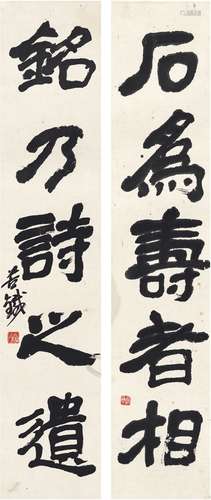 石為壽者相
銘乃詩之遺
苦鐵